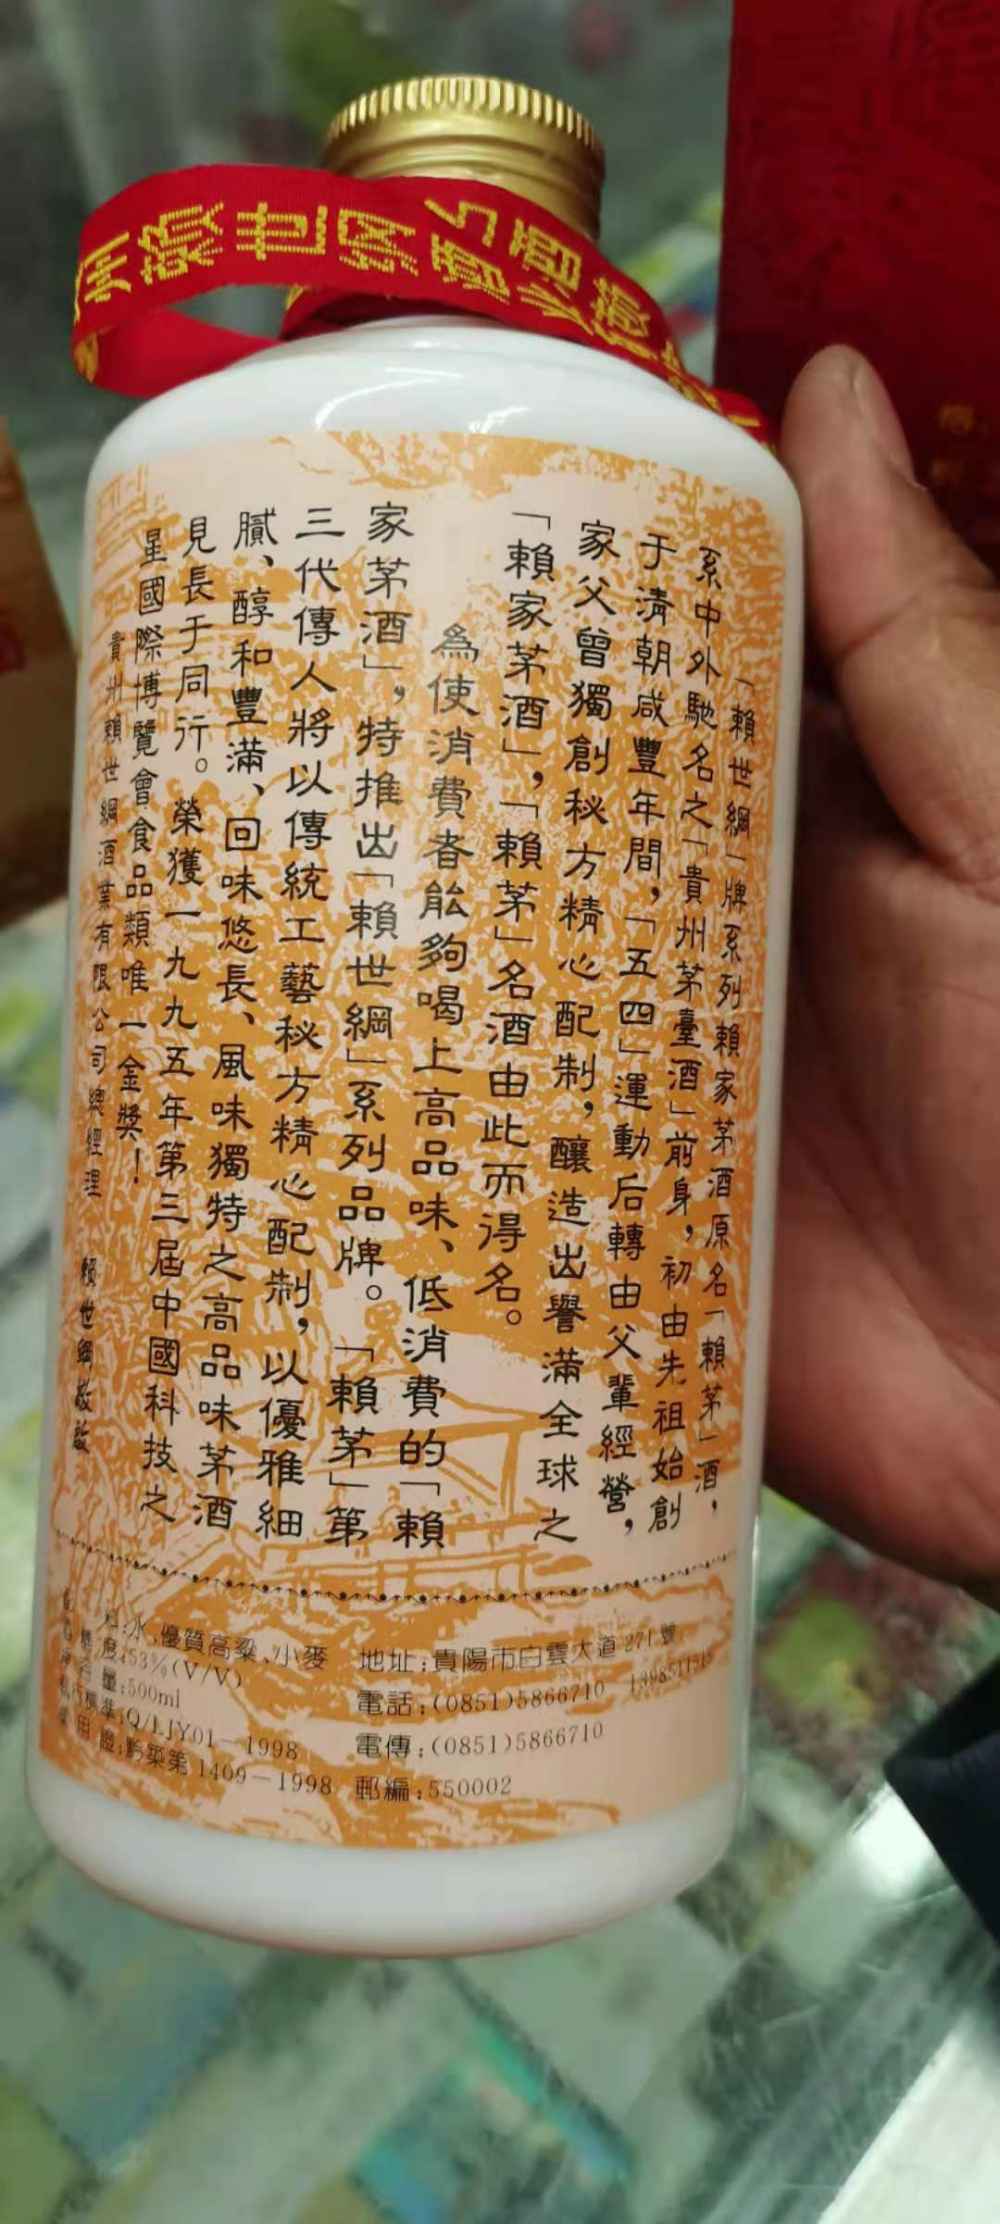 州賴世綱
「賴世綱」牌系列賴家茅酒原名「賴茅」酒，
系中外馳名之「貴州茅臺酒」前身，初由先祖始創
于清朝咸豐年間，「五四」運動后轉由父輩經營，
家父曾獨創秘方精心配制，釀造出譽滿全球之
「賴家茅酒」，「賴茅」名酒由此而得名。
為使消費者能夠喝上高品味、低消費的「賴
家茅酒」，特推出「賴世綱」系列品牌。「賴茅」第
三代傳人將以傳統工藝秘方精心配制，以優雅細
膩、醇和豐滿、回味悠長、風味獨特之高品味茅酒
見長于同行。榮獲一九九五年第三屆中國科技之
星國際博覽會食品類唯一金獎！
貴州賴世綱酒業有限公司總經理 賴世綱敬啟
料:水、優質高粱、小麥
度:53%(V/V)
量:500ml
準:Q/LJY01－1998
證:黔築第 1409－1998
地址:貴陽市白雲大道 271 號
電話:(0851)5866710
電傳:(0851)5866710
郵編:550002